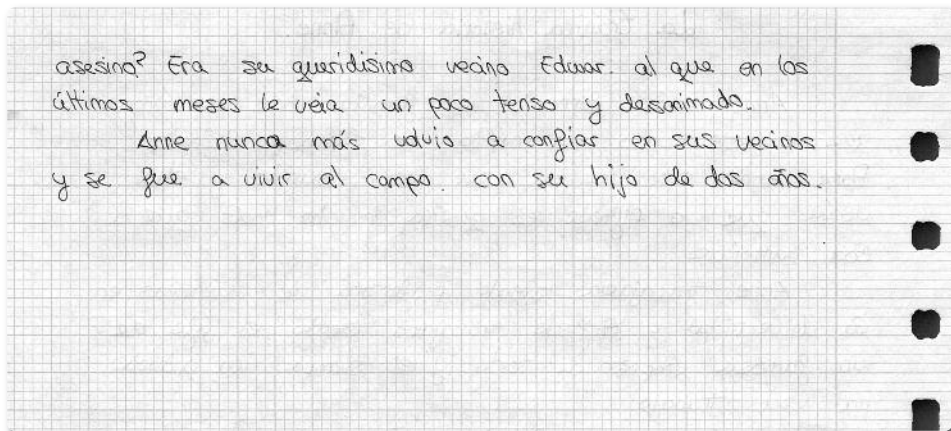 asesino? Era su queridisimo vecino Eduar. al que en los
últimos meses le veia un poco tenso y desanimado.
Anne nunca más volvio a confiar en sus vecinos
y se fue a vivir al campo. con su hijo de dos años.